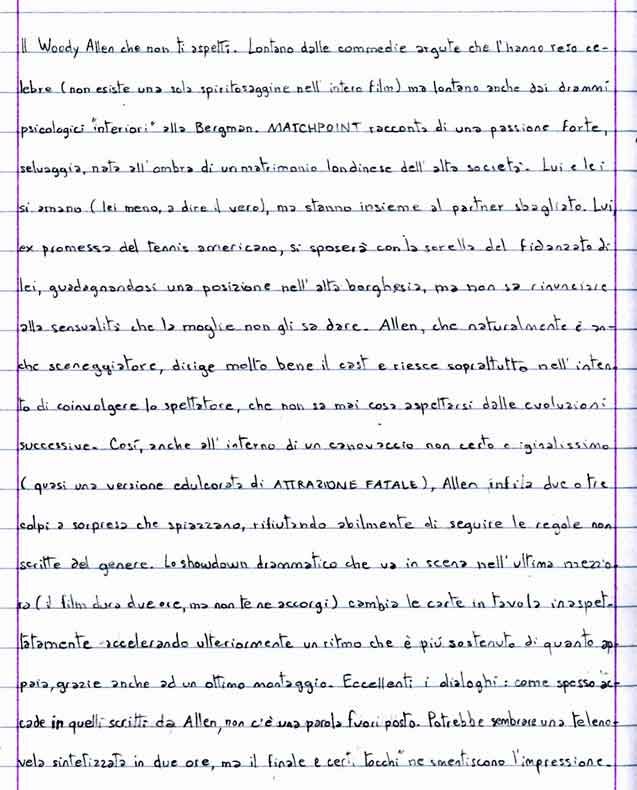 Il Woody Allen che non ti aspetti. Lontano dalle commedie argute che l'hanno reso ce-
lebre (non esiste una sola spiritosaggine nell'intero film) ma lontano anche dai drammi
psicologici "interiori" alla Bergman. MATCHPOINT racconta di una passione forte,
selvaggia, nata all'ombra di un matrimonio londinese dell'alta società. Lui e lei
si amano (lei meno, a dire il vero), ma stanno insieme al partner sbagliato. Lui,
ex promessa del tennis americano, si sposerà con la sorella del fidanzato di
lei, guadagnandosi una posizione nell'alta borghesia, ma non sa rinunciare
alla sensualità che la moglie non gli sa dare. Allen, che naturalmente è an-
che sceneggiatore, dirige molto bene il cast e riesce soprattutto nell'inten-
to di coinvolgere lo spettatore, che non sa mai cosa aspettarsi dalle evoluzioni
successive. Così, anche all'interno di un canovaccio non certo originalissimo
(quasi una versione edulcorata di ATTRAZIONE FATALE), Allen infila due o tre
colpi a sorpresa che spiazzano, rifiutando abilmente di seguire le regole non
scritte del genere. Lo showdown drammatico che va in scena nell'ultima mezzo-
ra (il film dura due ore, ma non te ne accorgi) cambia le carte in tavola inaspet-
tatamente accelerando ulteriormente un ritmo che è più sostenuto di quanto ap-
paia, grazie anche ad un ottimo montaggio. Eccellenti i dialoghi: come spesso ac-
cade in quelli scritti da Allen, non c'è una parola fuori posto. Potrebbe sembrare una teleno-
vela sintetizzata in due ore, ma il finale e certi "tocchi" ne smentiscono l'impressione.